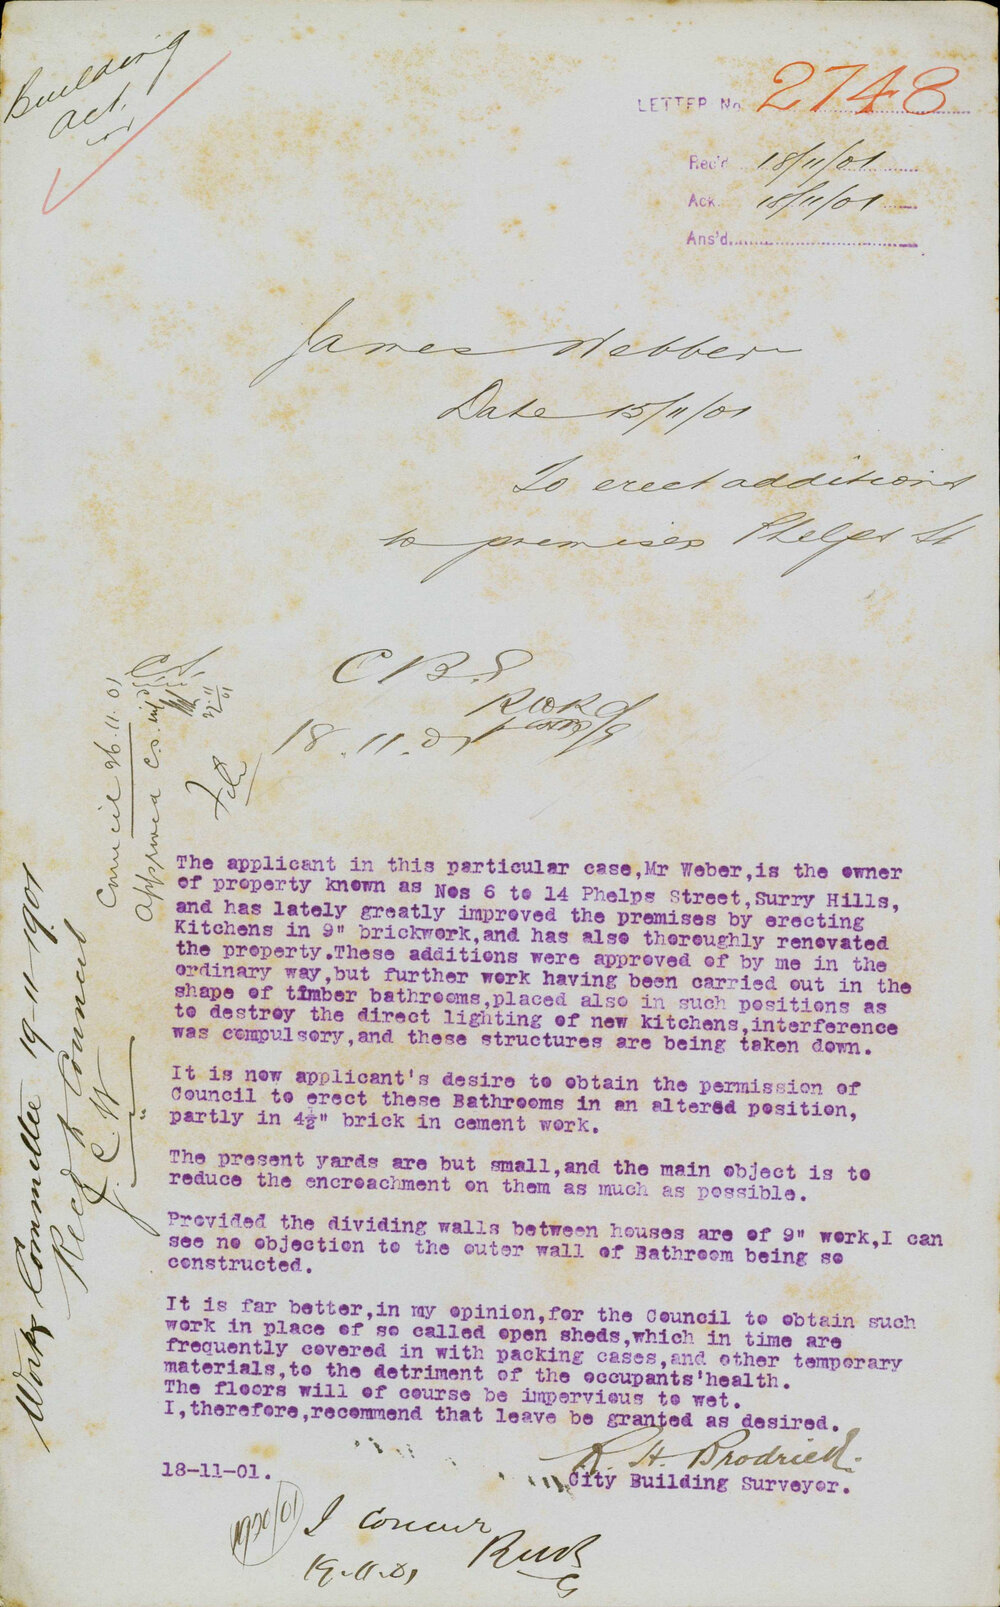 Building
Act.
LETTER No 2748
Rec'd 18/11/01
Ack. 18/11/01
Ans'd
James Webber
Date 15/11/01
To erect additions
to premises Phelps St
C B S
18.11.01
Council 26.11.01
Approved
File
The applicant in this particular case,Mr Weber,is the owner
of property known as Nos 6 to 14 Phelps Street,Surry Hills,
and has lately greatly improved the premises by erecting
Kitchens in 9" brickwork,and has also thoroughly renovated
the property.These additions were approved of by me in the
ordinary way,but further work having been carried out in the
shape of timber bathrooms,placed also in such positions as
to destroy the direct lighting of new kitchens,interference
was compulsory,and these structures are being taken down.
It is now applicant's desire to obtain the permission of
Council to erect these Bathrooms in an altered position,
partly in 4½" brick in cement work.
The present yards are but small,and the main object is to
reduce the encroachment on them as much as possible.
Provided the dividing walls between houses are of 9" work,I can
see no objection to the outer wall of Bathroom being so
constructed.
It is far better,in my opinion,for the Council to obtain such
work in place of so called open sheds,which in time are
frequently covered in with packing cases,and other temporary
materials,to the detriment of the occupants'health.
The floors will of course be impervious to wet.
I,therefore,recommend that leave be granted as desired.
R. H. Brodrick.
18-11-01.
City Building Surveyor.
Works Committee 19-11-1901
Rec. to Council
I concur
19.11.01